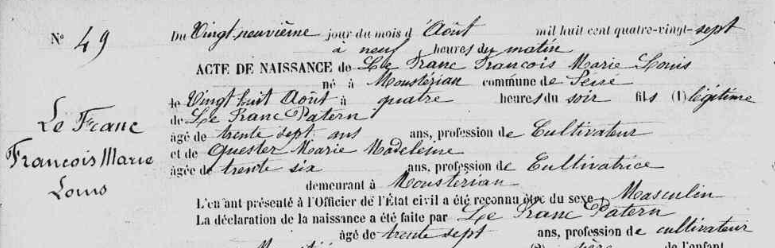 N° 49
Le Franc
Francois Marie
Louis
Du Vingt-neuvième jour du mois d'Août mil huit cent quatre-vingt-sept
à neuf heures du matin
ACTE DE NAISSANCE de Le Franc Francois Marie Louis
né à Moustérian commune de Séné
le Vingt huit Août à quatre heures du soir fils (1) légitime
de Le Franc Patern
âgé de trente sept ans ans, profession de Cultivateur
et de Quester Marie Madeleine
âgée de trente six ans, profession de Cultivatrice
demeurant à Moustérian
L'enfant présenté à l'Officier de l'État civil a été reconnu être du sexe Masculin
La déclaration de la naissance a été faite par Le Franc Patern
âgé de trente sept ans, profession de cultivateur
père de l'enfant